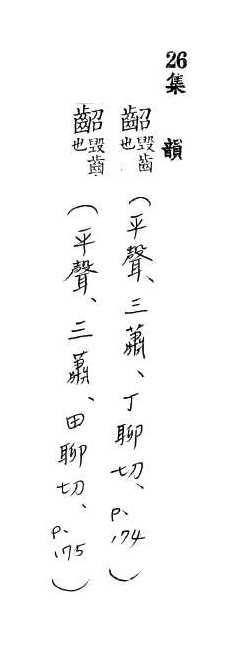 26集韻
齠毀齒也(平聲、三蕭、丁聊切、P.174)
齠毀齒也(平聲、三蕭、田聊切、P.175)